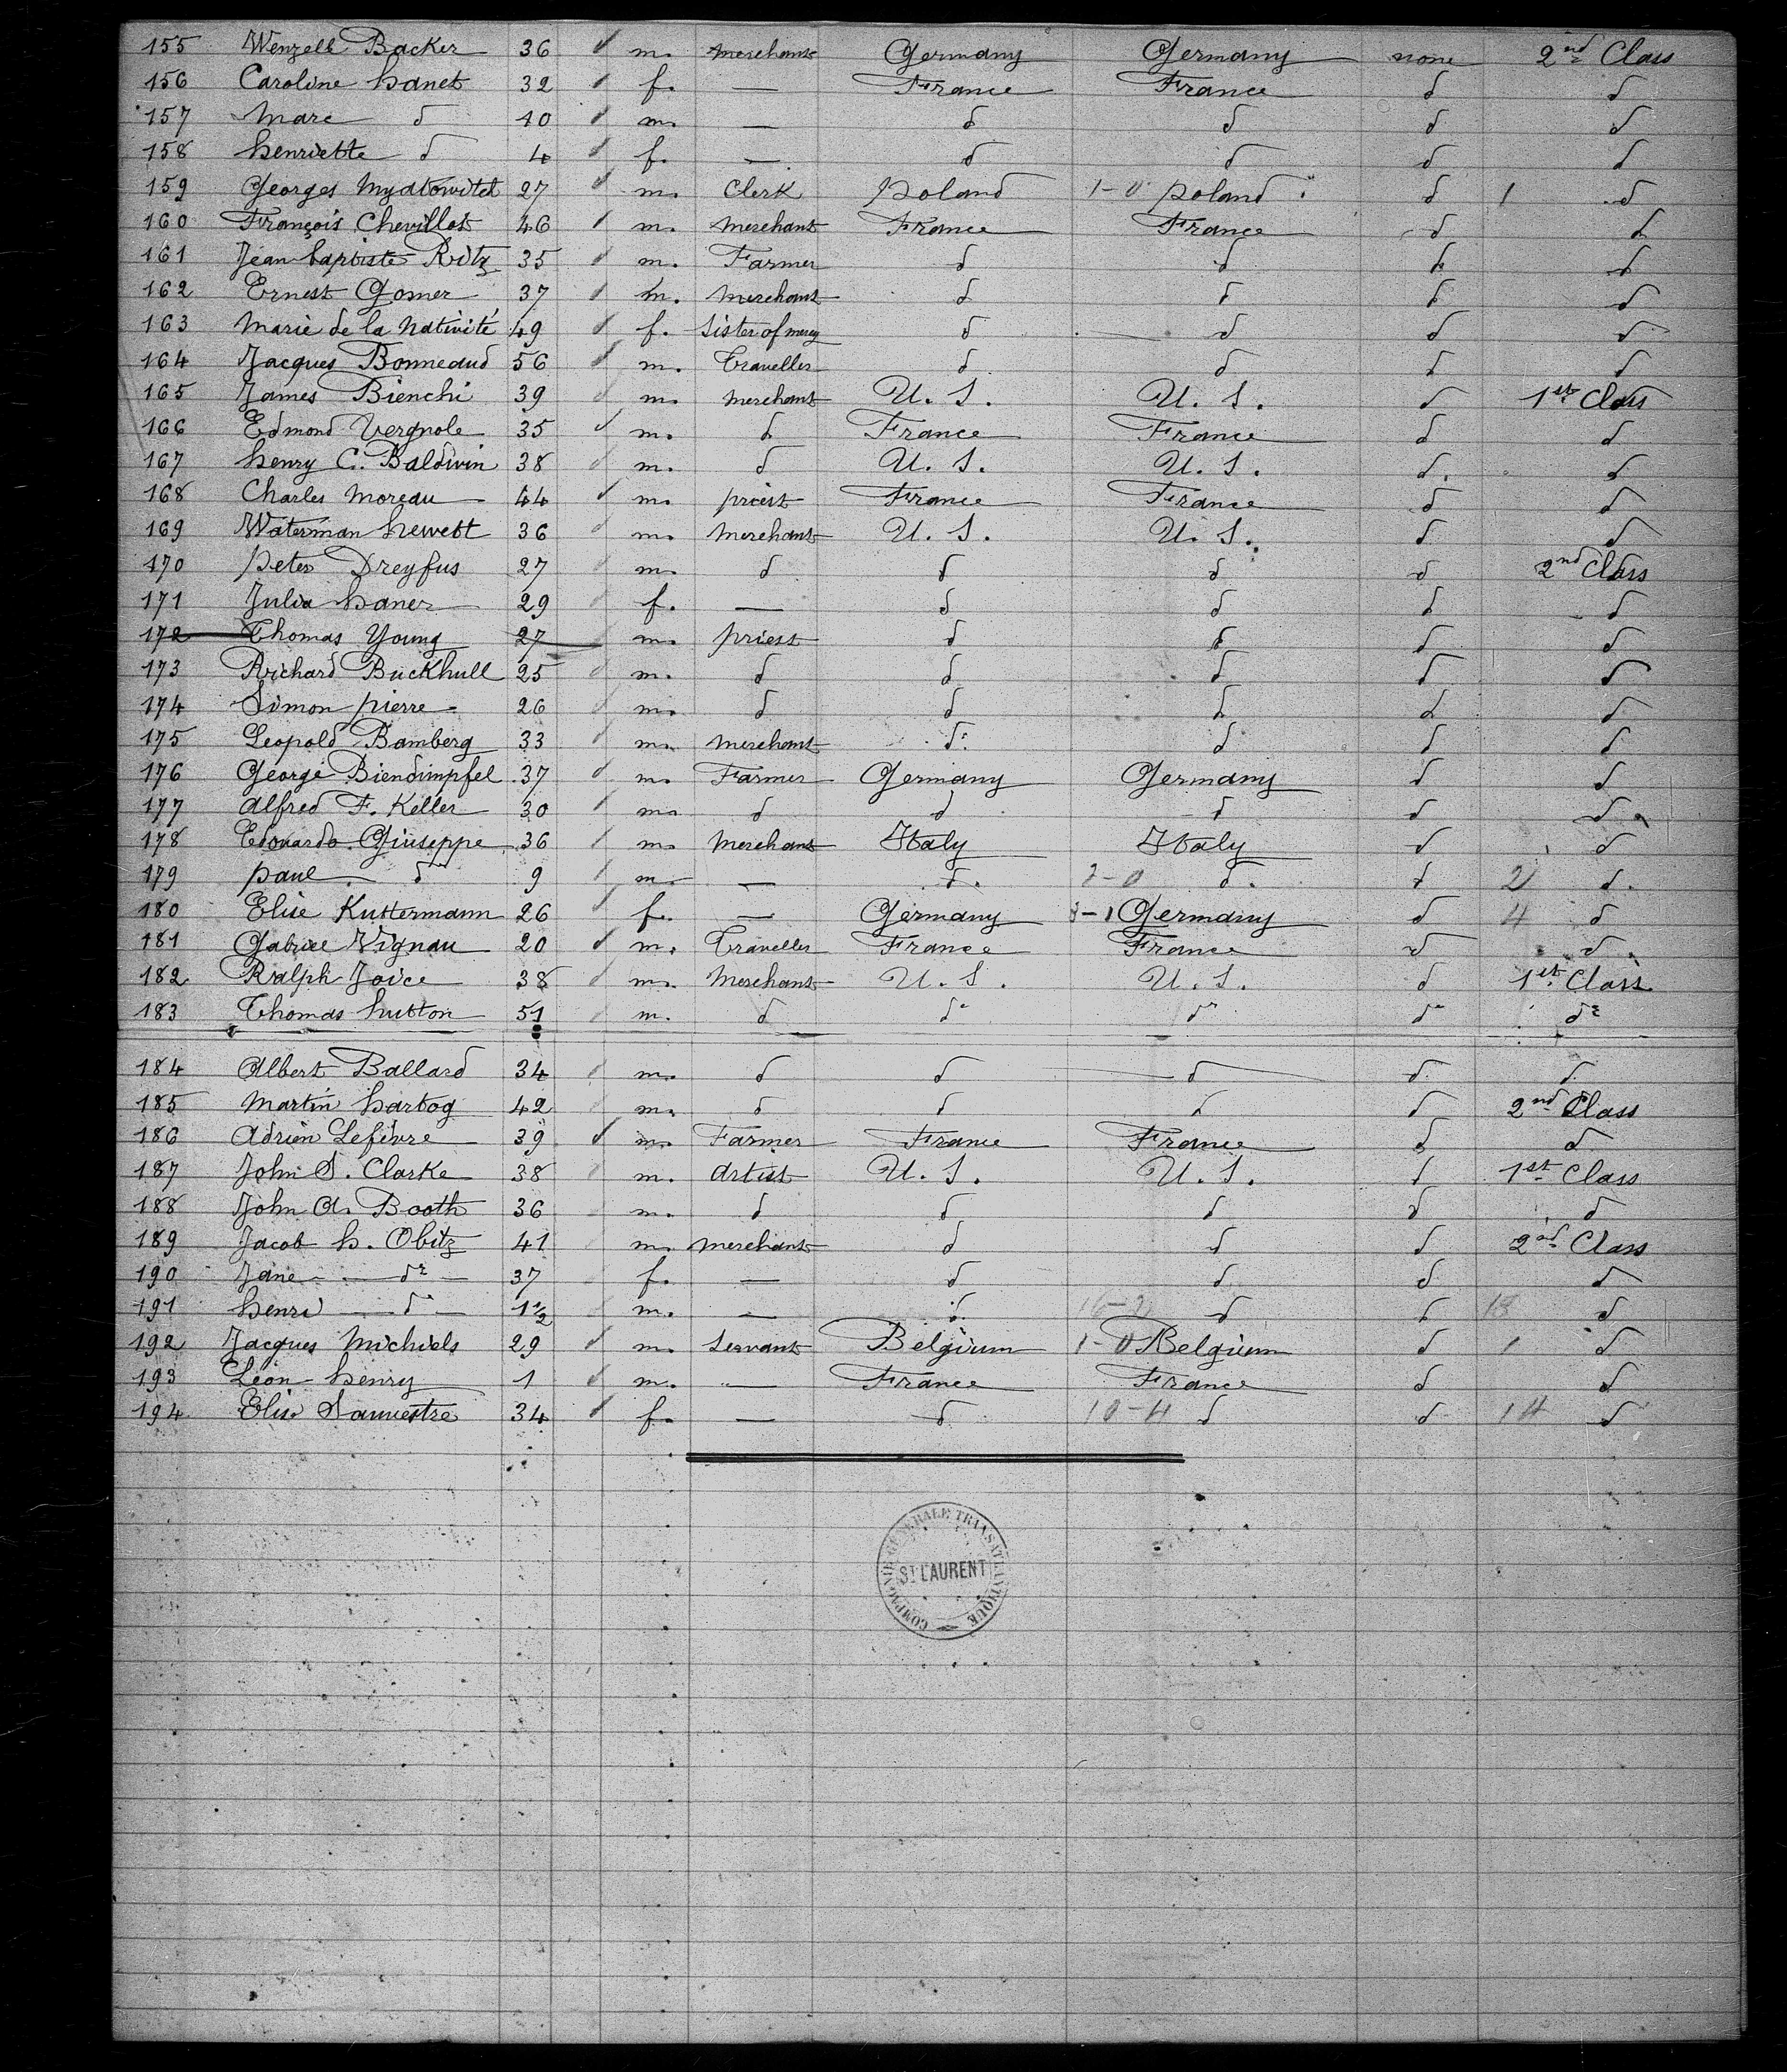 155 Wenzell Backer 36 m. merchant Germany Germany none 2nd Class
156 Caroline hanet 32 f. — France France d d
157 Marc d 10 m. — d d d d
158 henriette d 4 f. — d d d d
159 Georges 27 m. Clerk poland 1-0 poland d 1 d
160 François Chevillot 46 m. merchant France France d d
161 Jean baptiste Ritz 35 m. Farmer d d d d
162 Ernest Gomer 37 m. merchant d d d d
163 Marie de la Nativité 49 f. Sister of mercy d d d d
164 Jacques Bonneaud 56 m. Traveller d d d d
165 James Bienchi 39 m. merchant U. S. U. S. d 1st Class
166 Edmond Vergnole 35 m. d France France d d
167 henry C. Baldwin 38 m. d U. S. U. S. d. d
168 Charles Moreau 44 m. priest France France d d
169 Waterman hewett 36 m. merchant U. S. U. S. d d
170 peter Dreyfus 27 m. d d d d 2nd Class
171 Julia haner 29 f. — d d d d
172 Thomas Young 27 m. priest d d d d
173 Richard Buckhull 25 m. d d d d d
174 Simon pierre 26 m. d d d d d
175 Leopold Bamberg 33 m. merchant d d d d
176 George Biendimpfel 37 m. Farmer Germany Germany d d
177 Alfred F. Keller 30 m. d d d d d
178 Edouardo Giuseppe 36 m. merchant Italy Italy d d
179 paul d 9 m. — d. 2-0 d. d 2 d.
180 Elise Kuttermann 26 f. — Germany 3-1 Germany d 4 d
181 Gabriel Vignau 20 m. Traveller France France d d
182 Ralph Joice 38 m. Merchant U. S. U. S. d 1st Class
183 Thomas hutton 51 m. d do do do do
184 Albert Ballard 34 m. d d d d d
185 Martin hartog 42 m. d d d d 2nd Class
186 Adrien Lefèvre 39 m. Farmer France France d d
187 John S. Clarke 38 m. artist U. S. U. S. d 1st Class
188 John A. Booth 36 m. d d d d d
189 Jacob h. Obitz 41 m. merchant d d d 2nd Class
190 Jane do 37 f. — d d d d
191 henri do 1 1/2 m. — d. 16-2 d d 18 d
192 Jacques Michiels 29 m. Servant Belgium 1-0 Belgium d 1 d
193 Léon henry 1 m. — France France d d
194 Elise Sauvestre 34 f. — d 10-4 d d 14 d
COMPAGNIE GÉNÉRALE TRANSATLANTIQUE
ST LAURENT